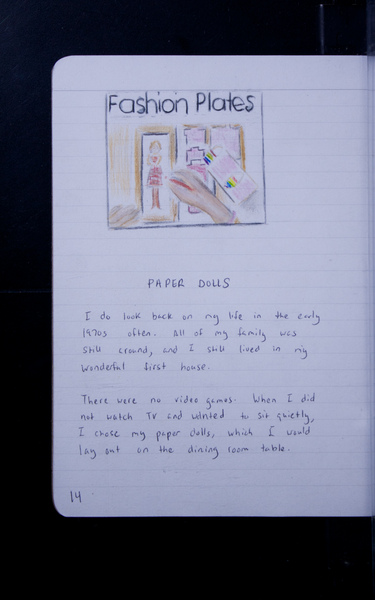 Fashion Plates
PAPER DOLLS
I do look back on my life in the early
1970s often. All of my family was
still around, and I still lived in my
wonderful first house.
There were no video games. When I did
not watch TV and wanted to sit quietly,
I chose my paper dolls, which I would
lay out on the dining room table.
14